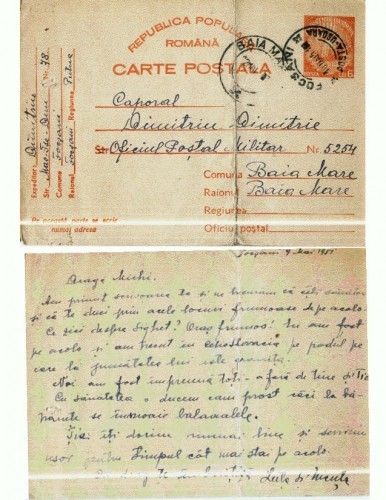 REPUBLICA POPULARĂ
ROMÂNĂ
CARTE POSTALĂ
BAIA MARE
FOCSANI
Caporal
Dimitriu Dimitrie
Str. Oficiul Poștal Militar Nr. 5254
Comuna Baia Mare
Raionul Baia Mare
Regiunea
Oficiul poștal
Expeditor: Dimitriu
Str. Nr. 78
Comuna Focșani
Raionul Focșani Regiunea Putna
Pe această parte se scrie
numai adresa
Focșani 9 Mai 1951
Drage Michi.
Am primit scrisoarea ta și ne bucurăm că ești sănătos
și că te duci prin acele locuri frumoase de pe acolo.
Ce zici despre Sighet? Oraș frumos! Eu am fost
pe acolo și am trecut în cehoslovacia pe podul pe
care la jumătatea lui este granița.
Noi am fost împreună toți afară de tine și
Cu sănătatea o ducem cam prost căci la bă-
trânețe se încuraie balamalele.
îți dorim numai bine și serviciu
ușor pentru timpul cât mai stai pe acolo.
Cu drag te îmbrățișez